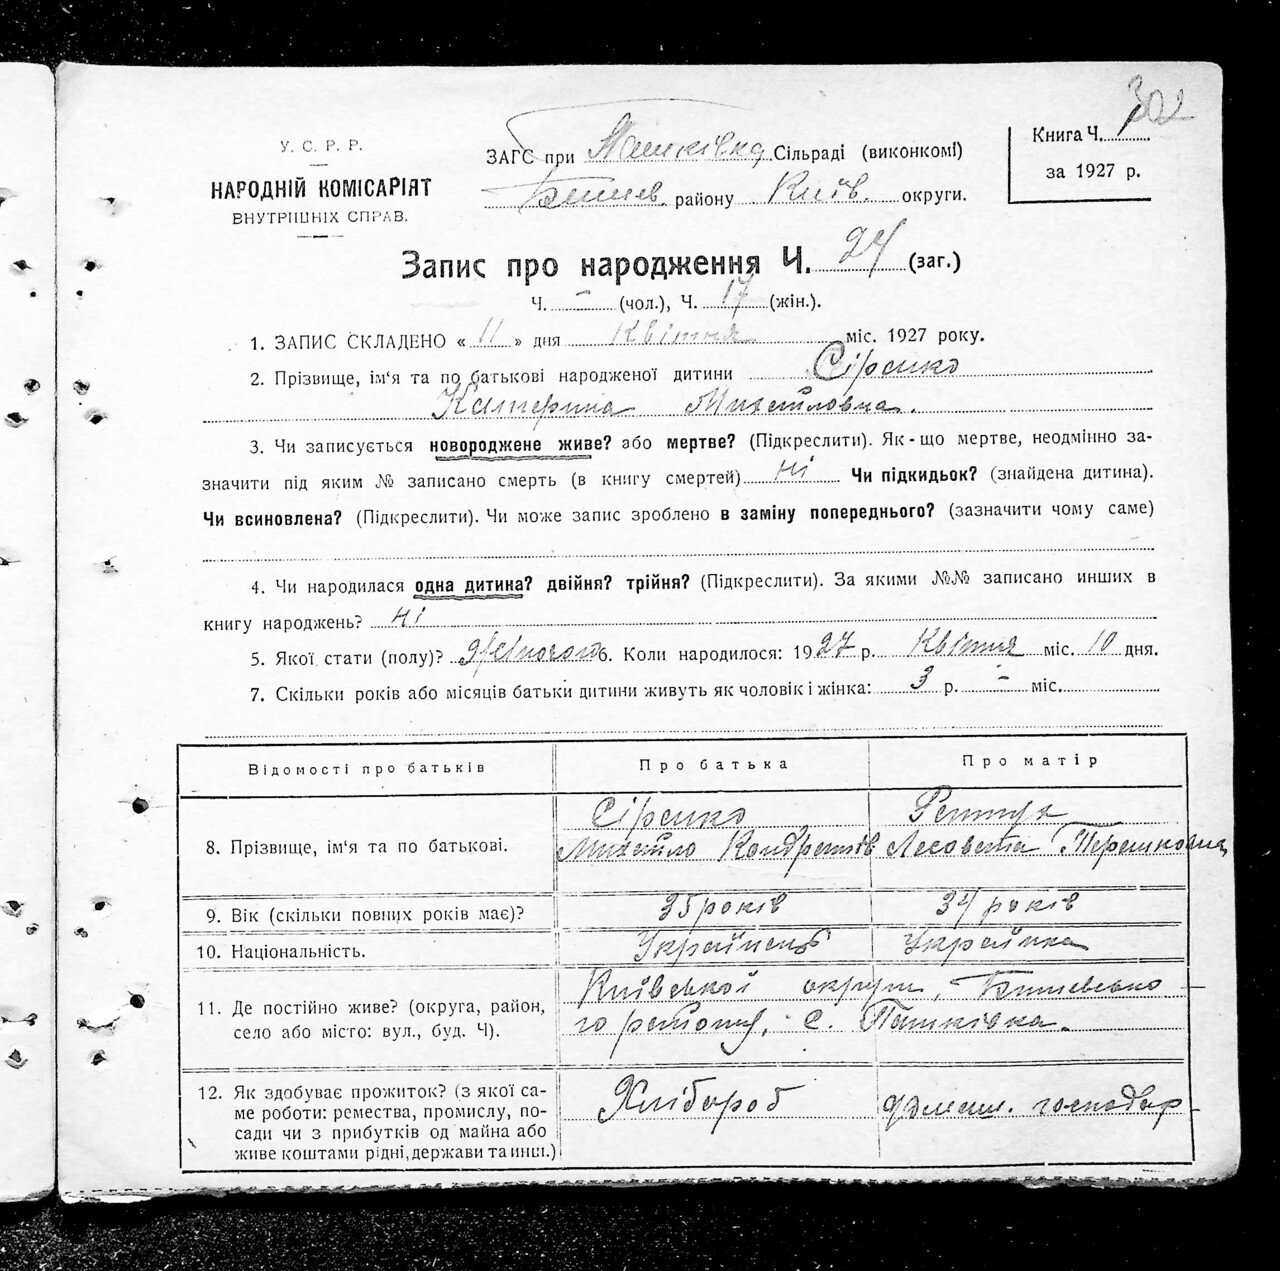 302
У. С. Р. Р.
НАРОДНІЙ КОМІСАРІЯТ
ВНУТРІШНІХ СПРАВ.
ЗАГС при Пашківка, Сільраді (виконкомі)
Бишев. району Київ. округи.
Книга Ч.
за 1927 р.
Запис про народження Ч. 24 (заг.)
Ч. - (чол.), Ч. 17 (жін.).
1. ЗАПИС СКЛАДЕНО « 11 » дня Квітня міс. 1927 року.
2. Прізвище, ім'я та по батькові народженої дитини Сіренко
Катерина Михайловна.
3. Чи записується новороджене живе? або мертве? (Підкреслити). Як-що мертве, неодмінно за-
значити під яким № записано смерть (в книгу смертей) ні Чи підкидьок? (знайдена дитина).
Чи всиновлена? (Підкреслити). Чи може запис зроблено в заміну попереднього? (зазначити чому саме)
4. Чи народилася одна дитина? двійня? трійня? (Підкреслити). За якими №№ записано инших в
книгу народжень? ні
5. Якої стати (полу)? 6. Коли народилося: 1927 р. Квітня міс. 10 дня.
7. Скільки років або місяців батьки дитини живуть як чоловік і жінка: 3 р. - міс.
Відомості про батьків
Про батька
Про матір
8. Прізвище, ім'я та по батькові.
Сіренко
Михайло Кондратів
Лесовета
9. Вік (скільки повних років має)?
35 років
34 років
10. Національність.
Українець
Українка
11. Де постійно живе? (округа, район,
село або місто: вул., буд. Ч).
Київської округи, Бишевсько-
го району, с. Пашківка.
12. Як здобуває прожиток? (з якої са-
ме роботи: ремества, промислу, по-
сади чи з прибутків од майна або
живе коштами рідні, держави та инш.)
Хлібороб
домаш. господар-